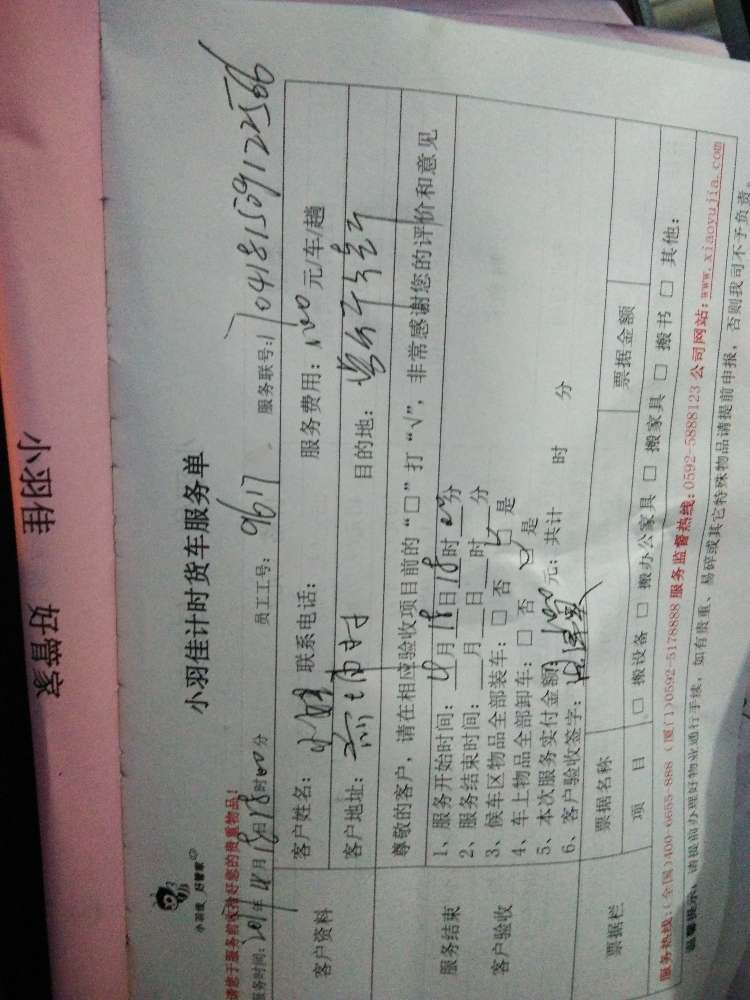 小羽佳 好管家
小羽佳 好管家
小羽佳计时货车服务单
请您于服务前收拾好您的贵重物品!
服务时间:2017年4月18日18时00分 员工工号:9617 服务联号:170418150912256
客户资料
客户姓名: 小 联系电话: 服务费用:100元/车/趟
客户地址: 村 目的地:
尊敬的客户,请在相应验收项目前的“□”打“√”,非常感谢您的评价和意见
服务结束
客户验收
1、服务开始时间:4月18日18时00分
2、服务结束时间: 月 日 时 分
3、候车区物品全部装车:□ 否 ☑ 是
4、车上物品全部卸车:□ 否 ☑ 是
5、本次服务实付金额:100元;共计 时 分
6、客户验收签字:
票据栏
票据名称 票据金额
项 目 □ 搬设备 □ 搬办公家具 □ 搬家具 □ 搬书 □ 其他:
服务热线:(全国)400-0655-888 (厦门)0592-5178888 服务监督热线:0592-5888123 公司网站:www.xiaoyujia.com
温馨提示:请提前办理好物业通行手续,如有贵重、易碎或其它特殊物品请提前申报,否则我司不予负责。